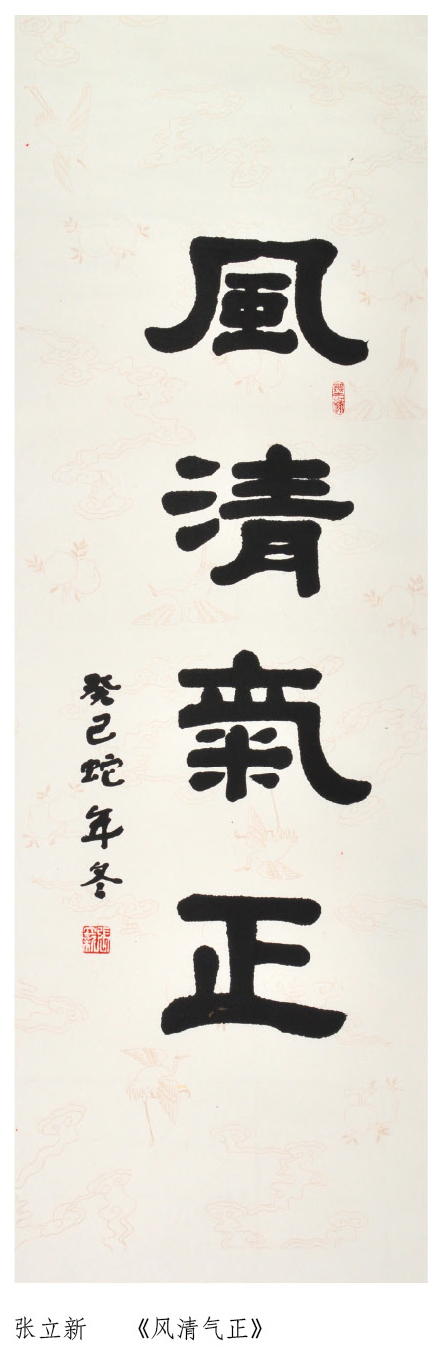 風清氣正
癸巳蛇年冬
张立新 《风清气正》